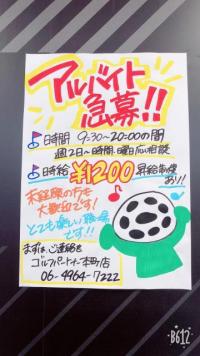 アルバイト
急募!!
日時間 9:30～20:00の間
週2日～時間、曜日応相談
日時給 ¥1200 昇給制度
あり!
未経験の方も
大歓迎です!
とても楽しい職場
です!!
まずは、ご連絡を
ゴルフパートナー本町店
06-4964-7222
B612